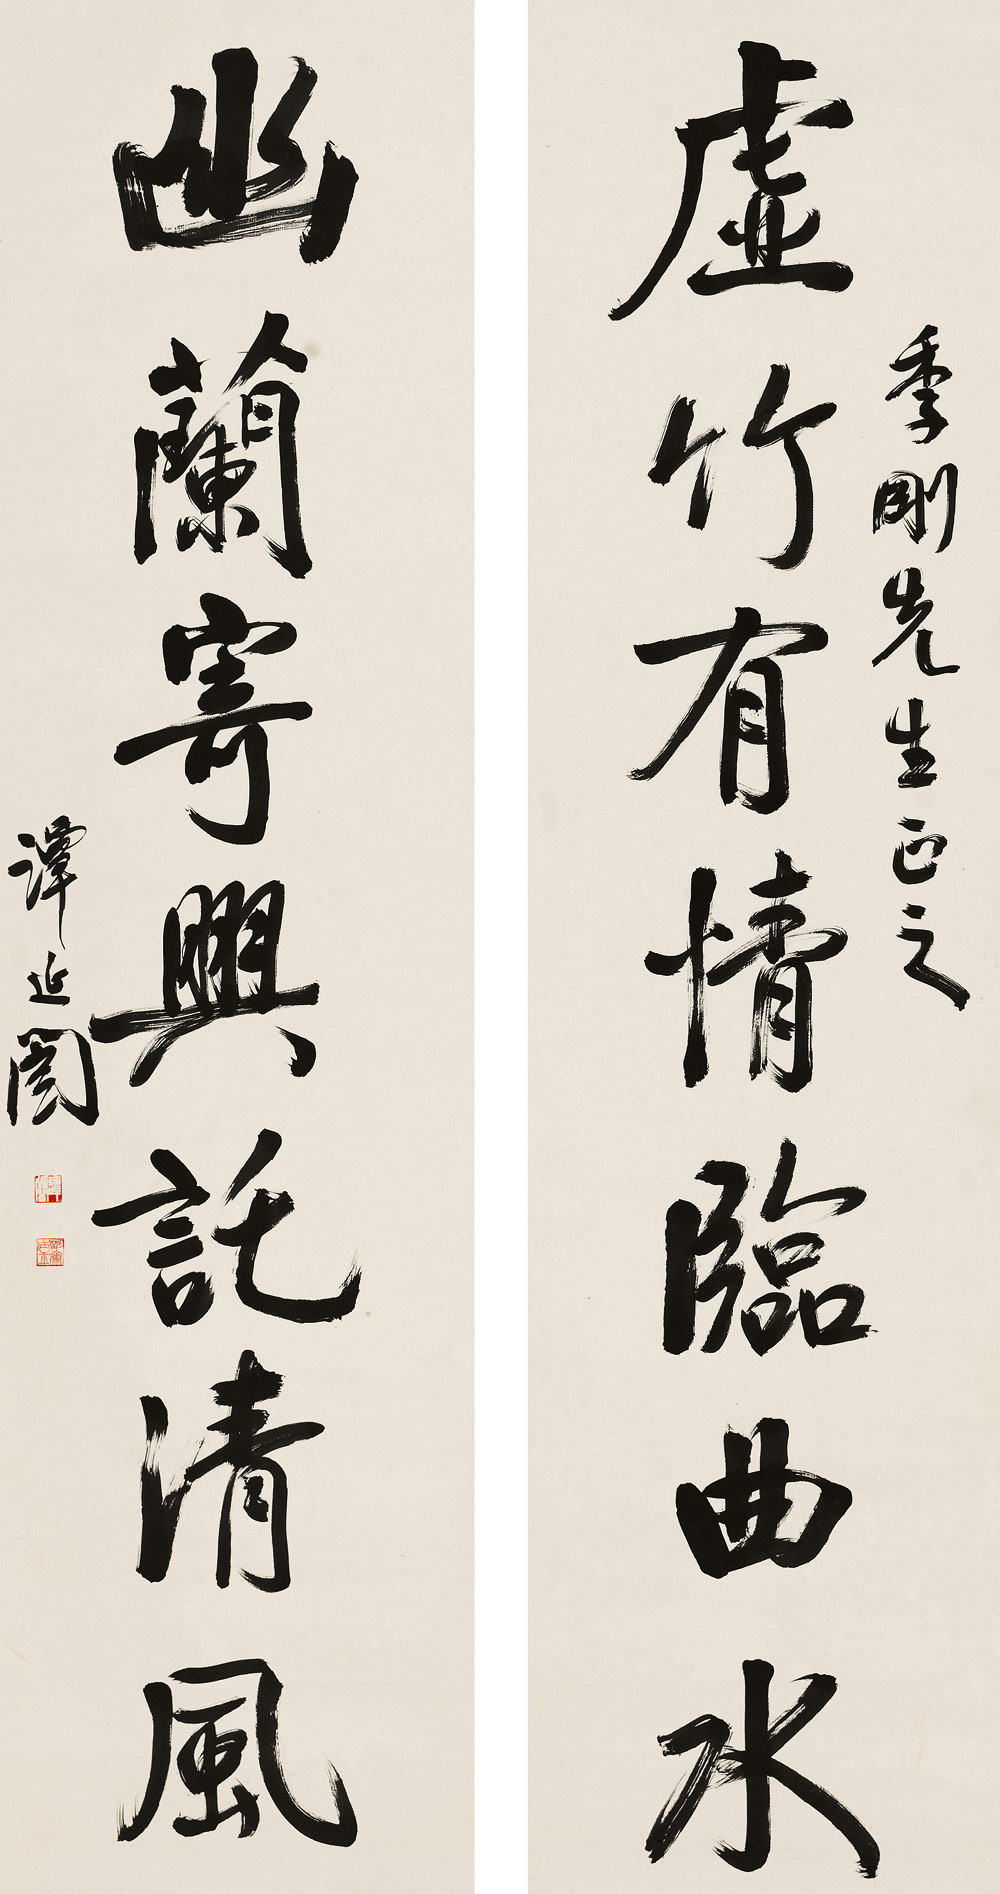 虛竹有情臨曲水
季剛先生正之
幽蘭寄興託清風
譚延闓